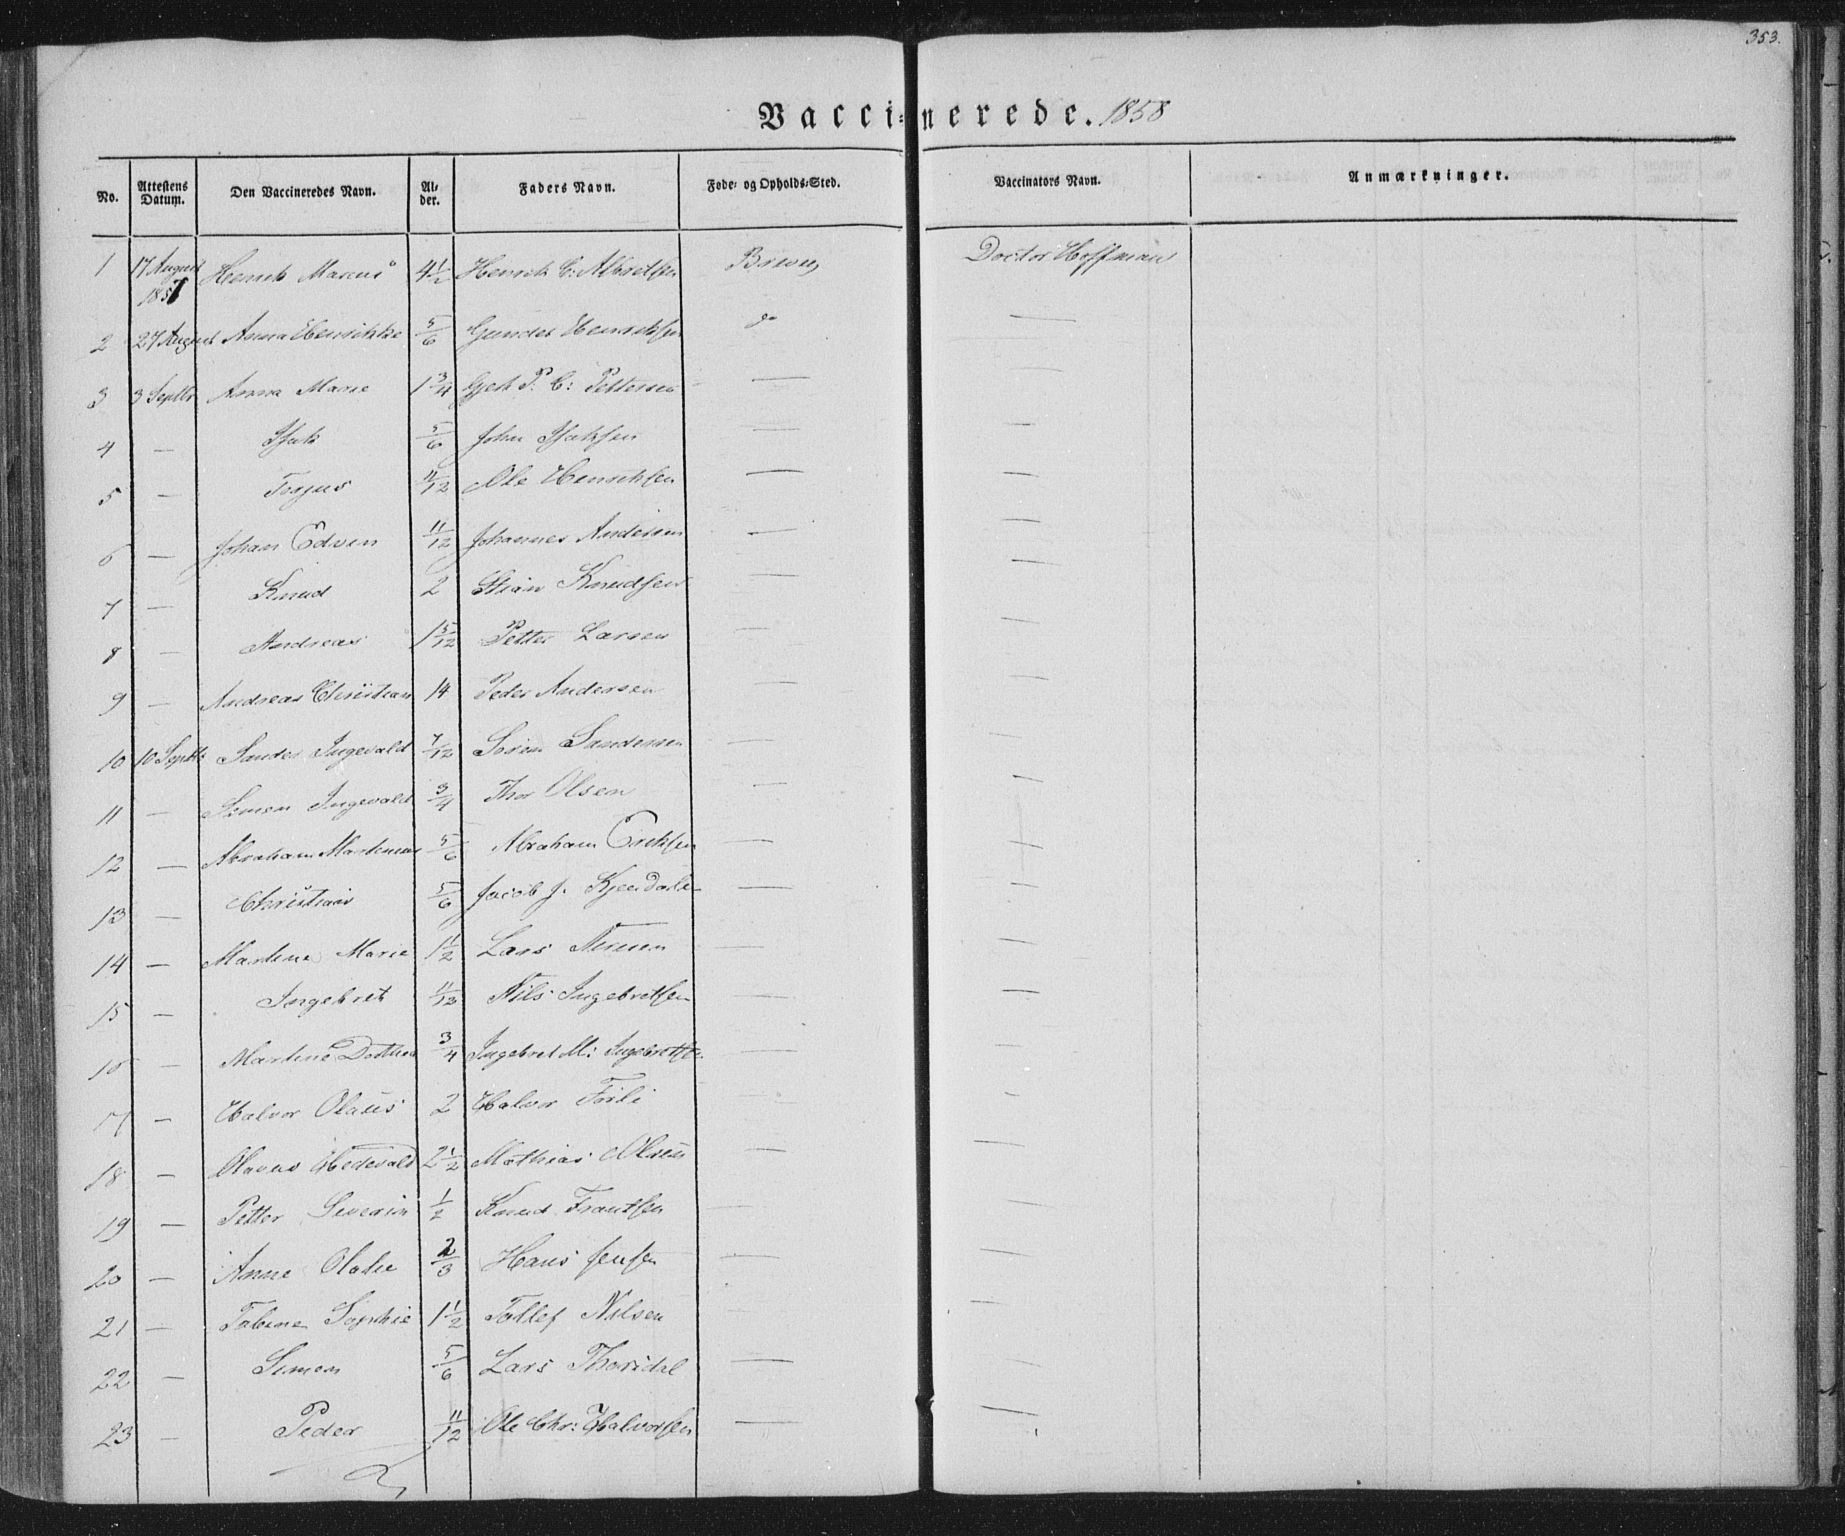 353.
Vaccinerede. 1858
No. Attestens Datum. Den Vaccineredes Navn. Alder. Faders Navn. Føde- og Opholds-Sted. Vaccinators Navn. Anmærkninger.
1 17 August 1857 Henrik Marcus 4 1/2 Henrik C: Albretsen Brevig Doctor Hoffman
2 27 August Anna Henrikke 5/6 Gunder Henriksen do —
3 3 Septbr Anna Marie 1 3/4 P. C: Pettersen — —
4 — Isak 5/6 John Isaksen — —
5 — Torjus 11/12 Ole Henriksen — —
6 — Johan Edven 11/12 Johannes Andersen — —
7 — Knud 2 Stian Knudsen — —
8 — Andreas 1 5/12 Petter Larsen — —
9 — Andreas Christian 14 Peder Andersen — —
10 10 Septbr Sander Ingevald 7/12 Søren Sandersen — —
11 — Simen Ingevald 3/4 Thor Olsen — —
12 — Abraham Martinius 5/6 Abraham Eriksen — —
13 — Christian 5/6 Jacob J. Kjendalen — —
14 — Martine Marie 1 1/2 Lars — —
15 — Ingebret 11/12 Nils Ingebretsen — —
16 — Martine Dorthea 3/4 Ingebret M: Ingebretsen — —
17 — Halvor Olaus 2 Halvor — —
18 — Olavus 2 1/2 Mathias Olsen — —
19 — Petter Severin 1/2 Knud Frantsen — —
20 — Anne Olalie 2/3 Hans Jensen — —
21 — Tabine Sophie 1 1/2 Tollef Nilsen — —
22 — Simen 5/6 Lars Thorsdal — —
23 — Peder 11/12 Ole Chr: Halvorsen — —